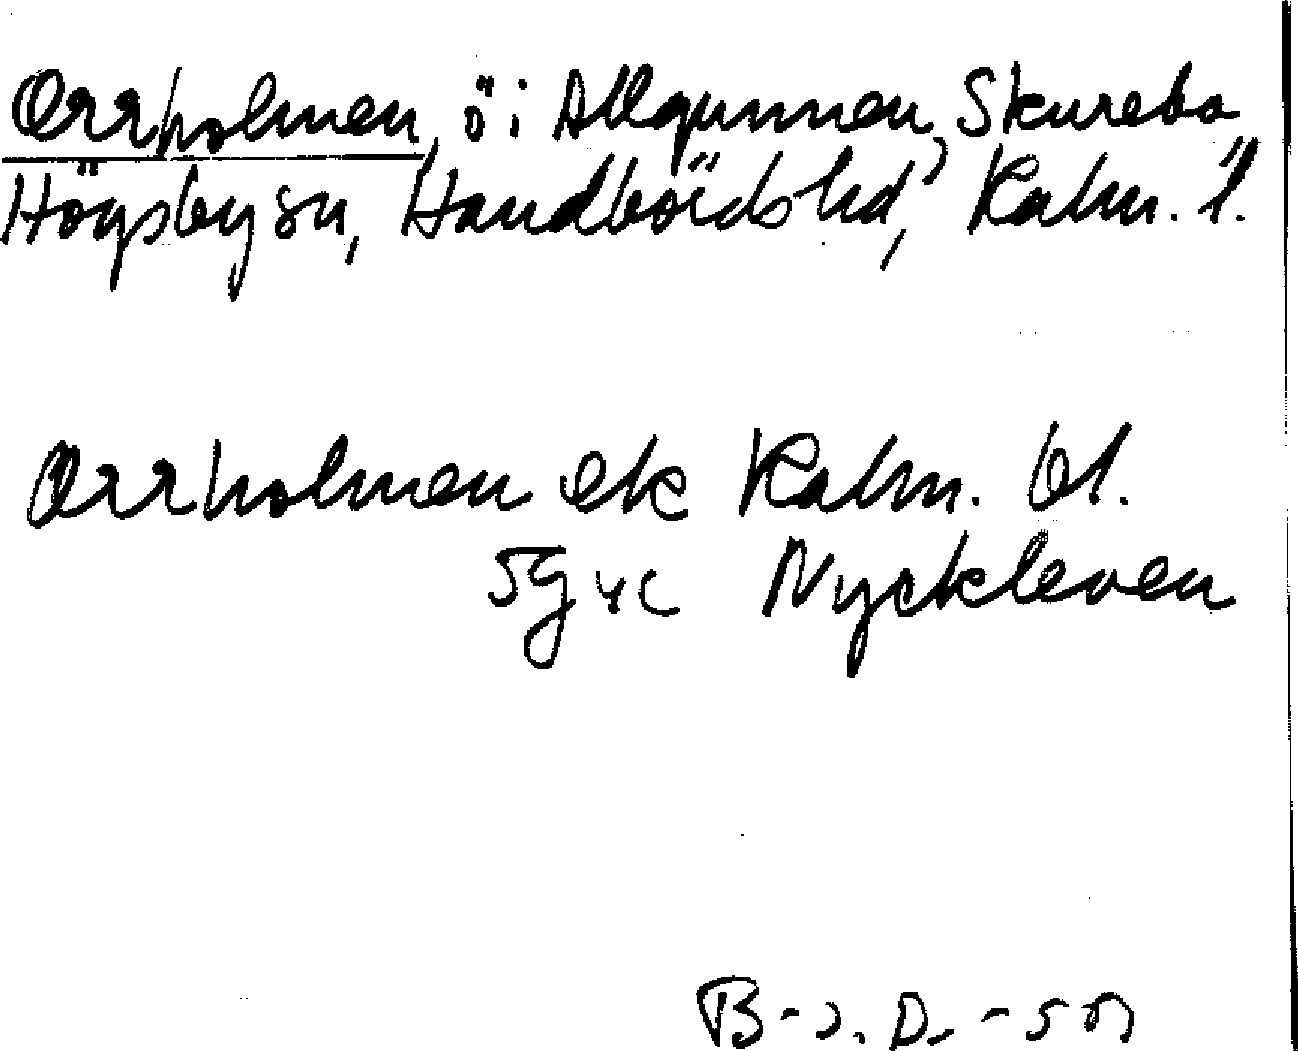 Orrholmen, ö i Allgunnen, Skurebo
Högsby sn, Handbörds hd, Kalm. l.
Orrholmen ek Kalm. bl.
5g Nyckleven